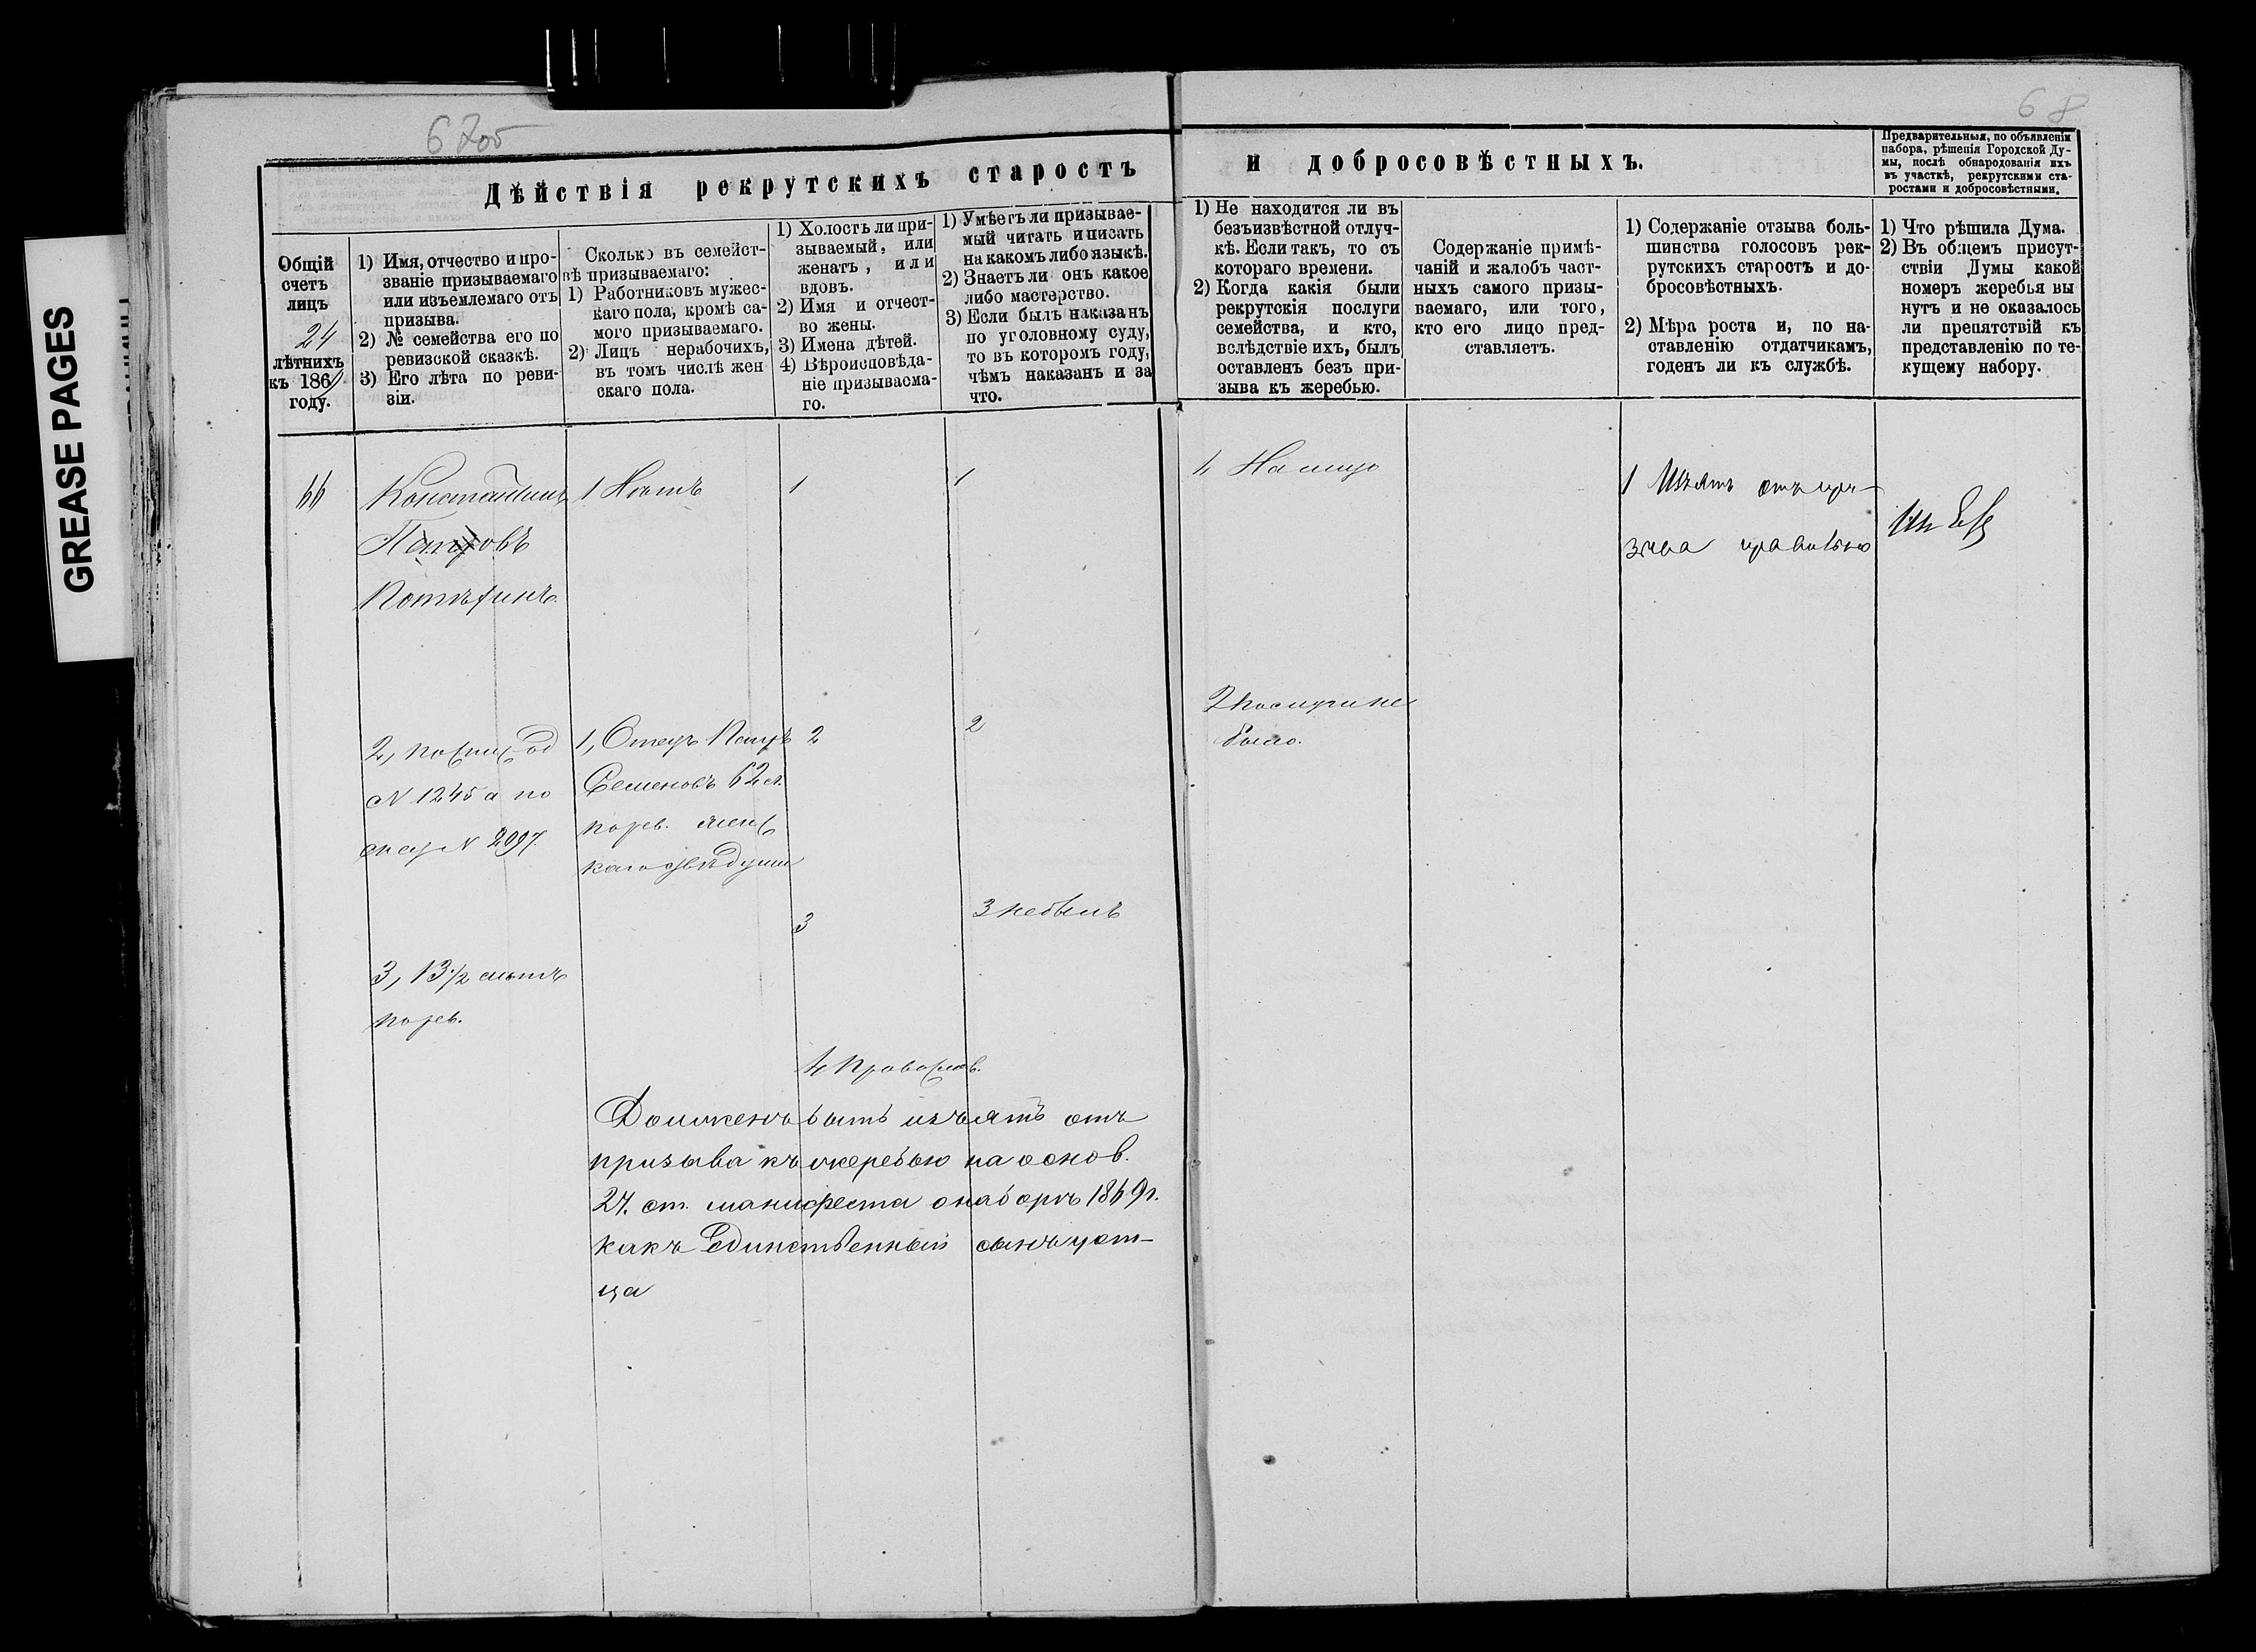 GREASE PAGES
67об
68
Дѣйствія рекрутскихъ старостъ
и добросовѣстныхъ.
Предварительныя, по объявленіи
набора, рѣшенія Городской Ду-
мы, послѣ обнародованія ихъ
въ участкѣ, рекрутскими ста-
ростами и добросовѣстными.
Общій
счетъ
лицъ
24
лѣтнихъ
къ 186
году.
1) Имя, отчество и про-
званіе призываемаго
или изъемлемаго отъ
призыва.
2) № семейства его по
ревизской сказкѣ.
3) Его лѣта по реви-
зіи.
Сколько въ семейст-
вѣ призываемаго:
1) Работниковъ мужес-
каго пола, кромѣ са-
мого призываемаго.
2) Лицъ нерабочихъ,
въ томъ числѣ жен
скаго пола.
1) Холостъ ли при-
зываемый, или
женатъ, или
вдовъ.
2) Имя и отчест-
во жены.
3) Имена дѣтей.
4) Вѣроисповѣда-
ніе призываема-
го.
1) Умѣетъ ли призывае-
мый читать и писать
на какомъ либо языкѣ.
2) Знаетъ ли онъ какое
либо мастерство.
3) Если былъ наказанъ
по уголовному суду,
то въ которомъ году,
чѣмъ наказанъ и за
что.
1) Не находится ли въ
безъизвѣстной отлуч-
кѣ. Если такъ, то съ
котораго времени.
2) Когда какія были
рекрутскія послуги
семейства, и кто,
вслѣдствіе ихъ, былъ
оставленъ безъ при-
зыва къ жеребью.
Содержаніе примѣ-
чаній и жалобъ част-
ныхъ самого призы-
ваемаго, или того,
кто его лицо пред-
ставляетъ.
1) Содержаніе отзыва боль-
шинства голосовъ рек-
рутскихъ старостъ и до-
бросовѣстныхъ.
2) Мѣра роста и, по на-
ставленію отдатчикамъ,
годенъ ли къ службѣ.
1) Что рѣшила Дума.
2) Въ общемъ присут-
ствіи Думы какой
номеръ жеребья вы
нутъ и не оказалось
ли препятствій къ
представленію по те-
кущему набору.
66
Константинъ
Петровъ
Потѣхинъ.
1 Нѣтъ
1
1
1, На лицо
1 Изъятъ отъ при-
зыва правильно
2,
N 1245 а по
N 2097.
1, Отецъ Петръ
Семеновъ 62 л.
по рев. женс
каго двѣ души
2
2
2 послуги не
было.
3
3 не былъ
3, 13 1/2 лѣтъ
по рев.
4 Правосла в.
Долженъ быть изъятъ отъ
призыва къ жеребью на основ.
27. ст. манифеста о наборѣ 1869 г.
какъ Единственный сынъ у от-
ца